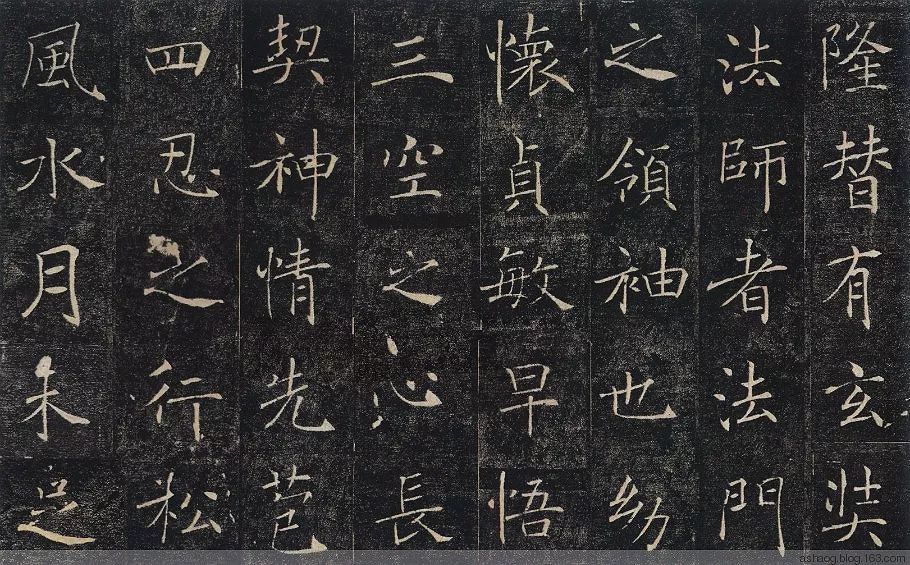 隆替有玄奘
法師者法門
之領袖也幼
懷貞敏早悟
三空之心長
契神情先苞
四忍之行松
風水月未足
ashaog.blog.163.com